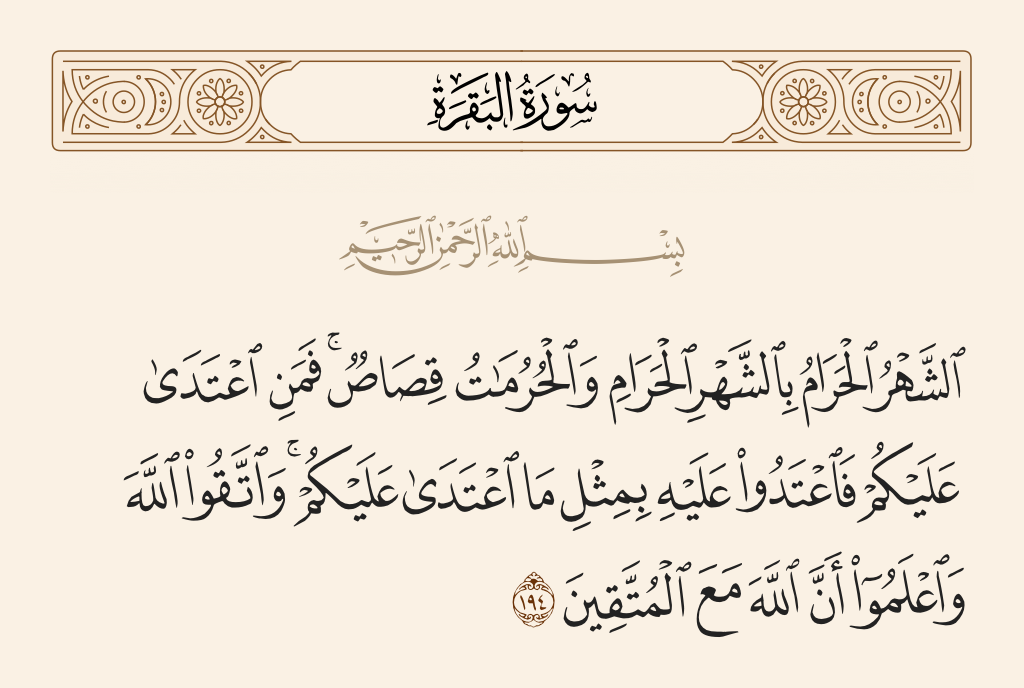 سُورَةُ البَقَرَةِ
بِسْمِ ٱللَّهِ ٱلرَّحْمَٰنِ ٱلرَّحِيمِ
ٱلشَّهْرُ ٱلْحَرَامُ بِٱلشَّهْرِ ٱلْحَرَامِ وَٱلْحُرُمَٰتُ قِصَاصٌ ۚ فَمَنِ ٱعْتَدَىٰ
عَلَيْكُمْ فَٱعْتَدُوا۟ عَلَيْهِ بِمِثْلِ مَا ٱعْتَدَىٰ عَلَيْكُمْ ۚ وَٱتَّقُوا۟ ٱللَّهَ
وَٱعْلَمُوٓا۟ أَنَّ ٱللَّهَ مَعَ ٱلْمُتَّقِينَ ١٩٤